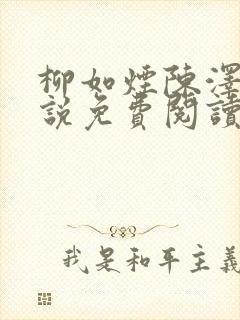 柳如煙陳澤
說免費閱讀
我是和平主義